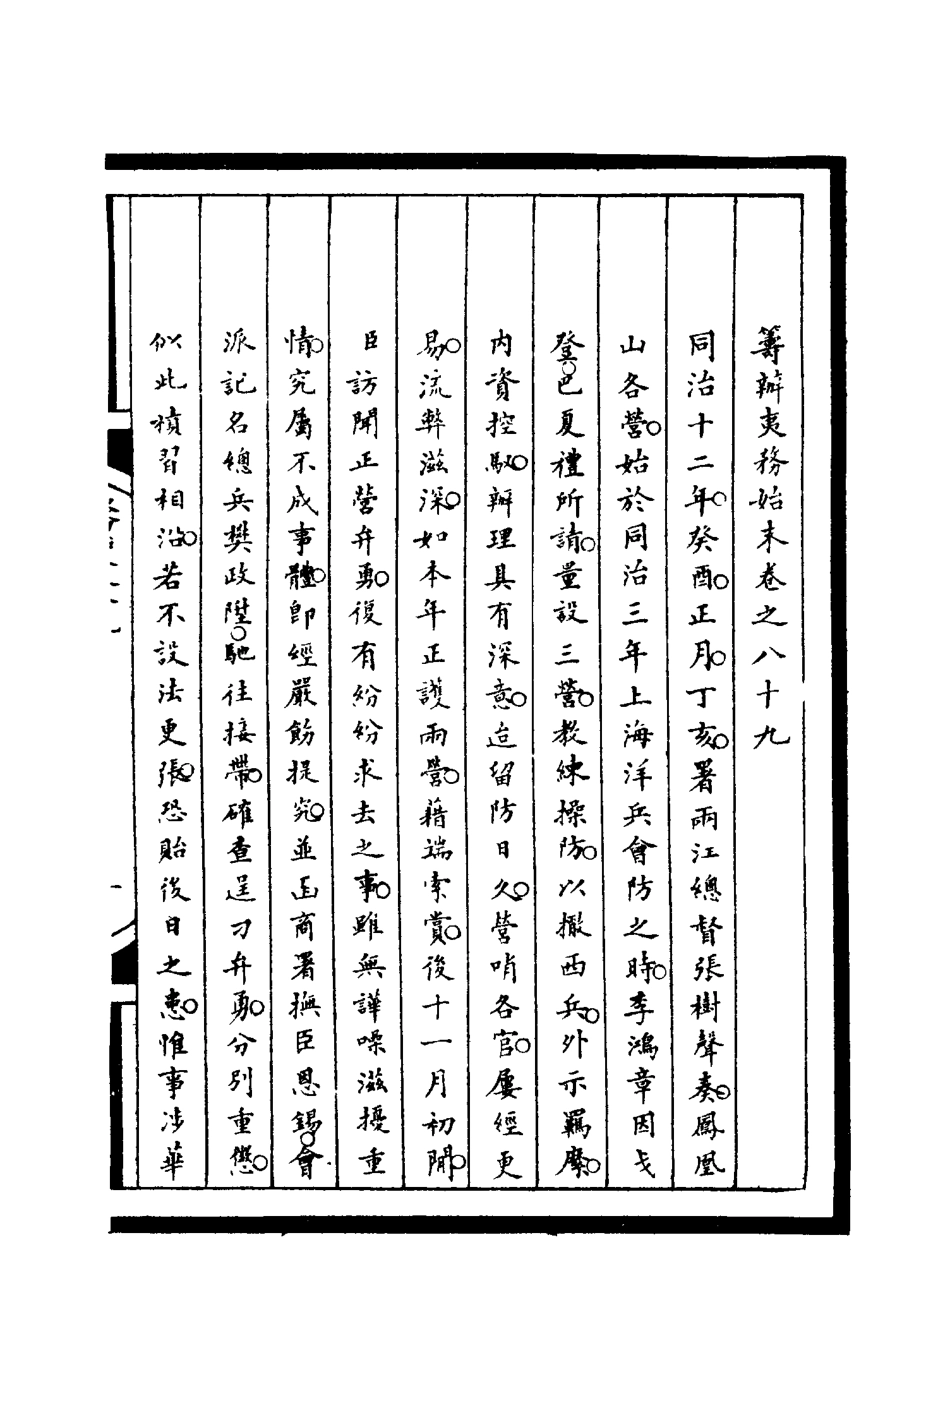 籌辦夷務始末卷之八十九
同治十二年。癸酉。正月。丁亥。署兩江總督張樹聲奏。鳳凰
山各營。始於同治三年上海洋兵會防之時。李鴻章因戈
登。巴夏禮所請。量設三營。教練操防。以撤西兵。外示羈縻。
內資控馭。辦理具有深意。迨留防日久。營哨各官。屢經更
易。流弊滋深。如本年正護兩營。藉端索賞。後十一月初間。
臣訪聞正營弁勇。復有紛紛求去之事。雖無譁噪滋擾重
情。究屬不成事體。卽經嚴飭提究。並函商署撫臣恩錫。會
派記名總兵樊政陞。馳往接帶。確查逞刁弁勇。分別重懲。
似此積習相沿。若不設法更張。恐貽後日之患。惟事涉華